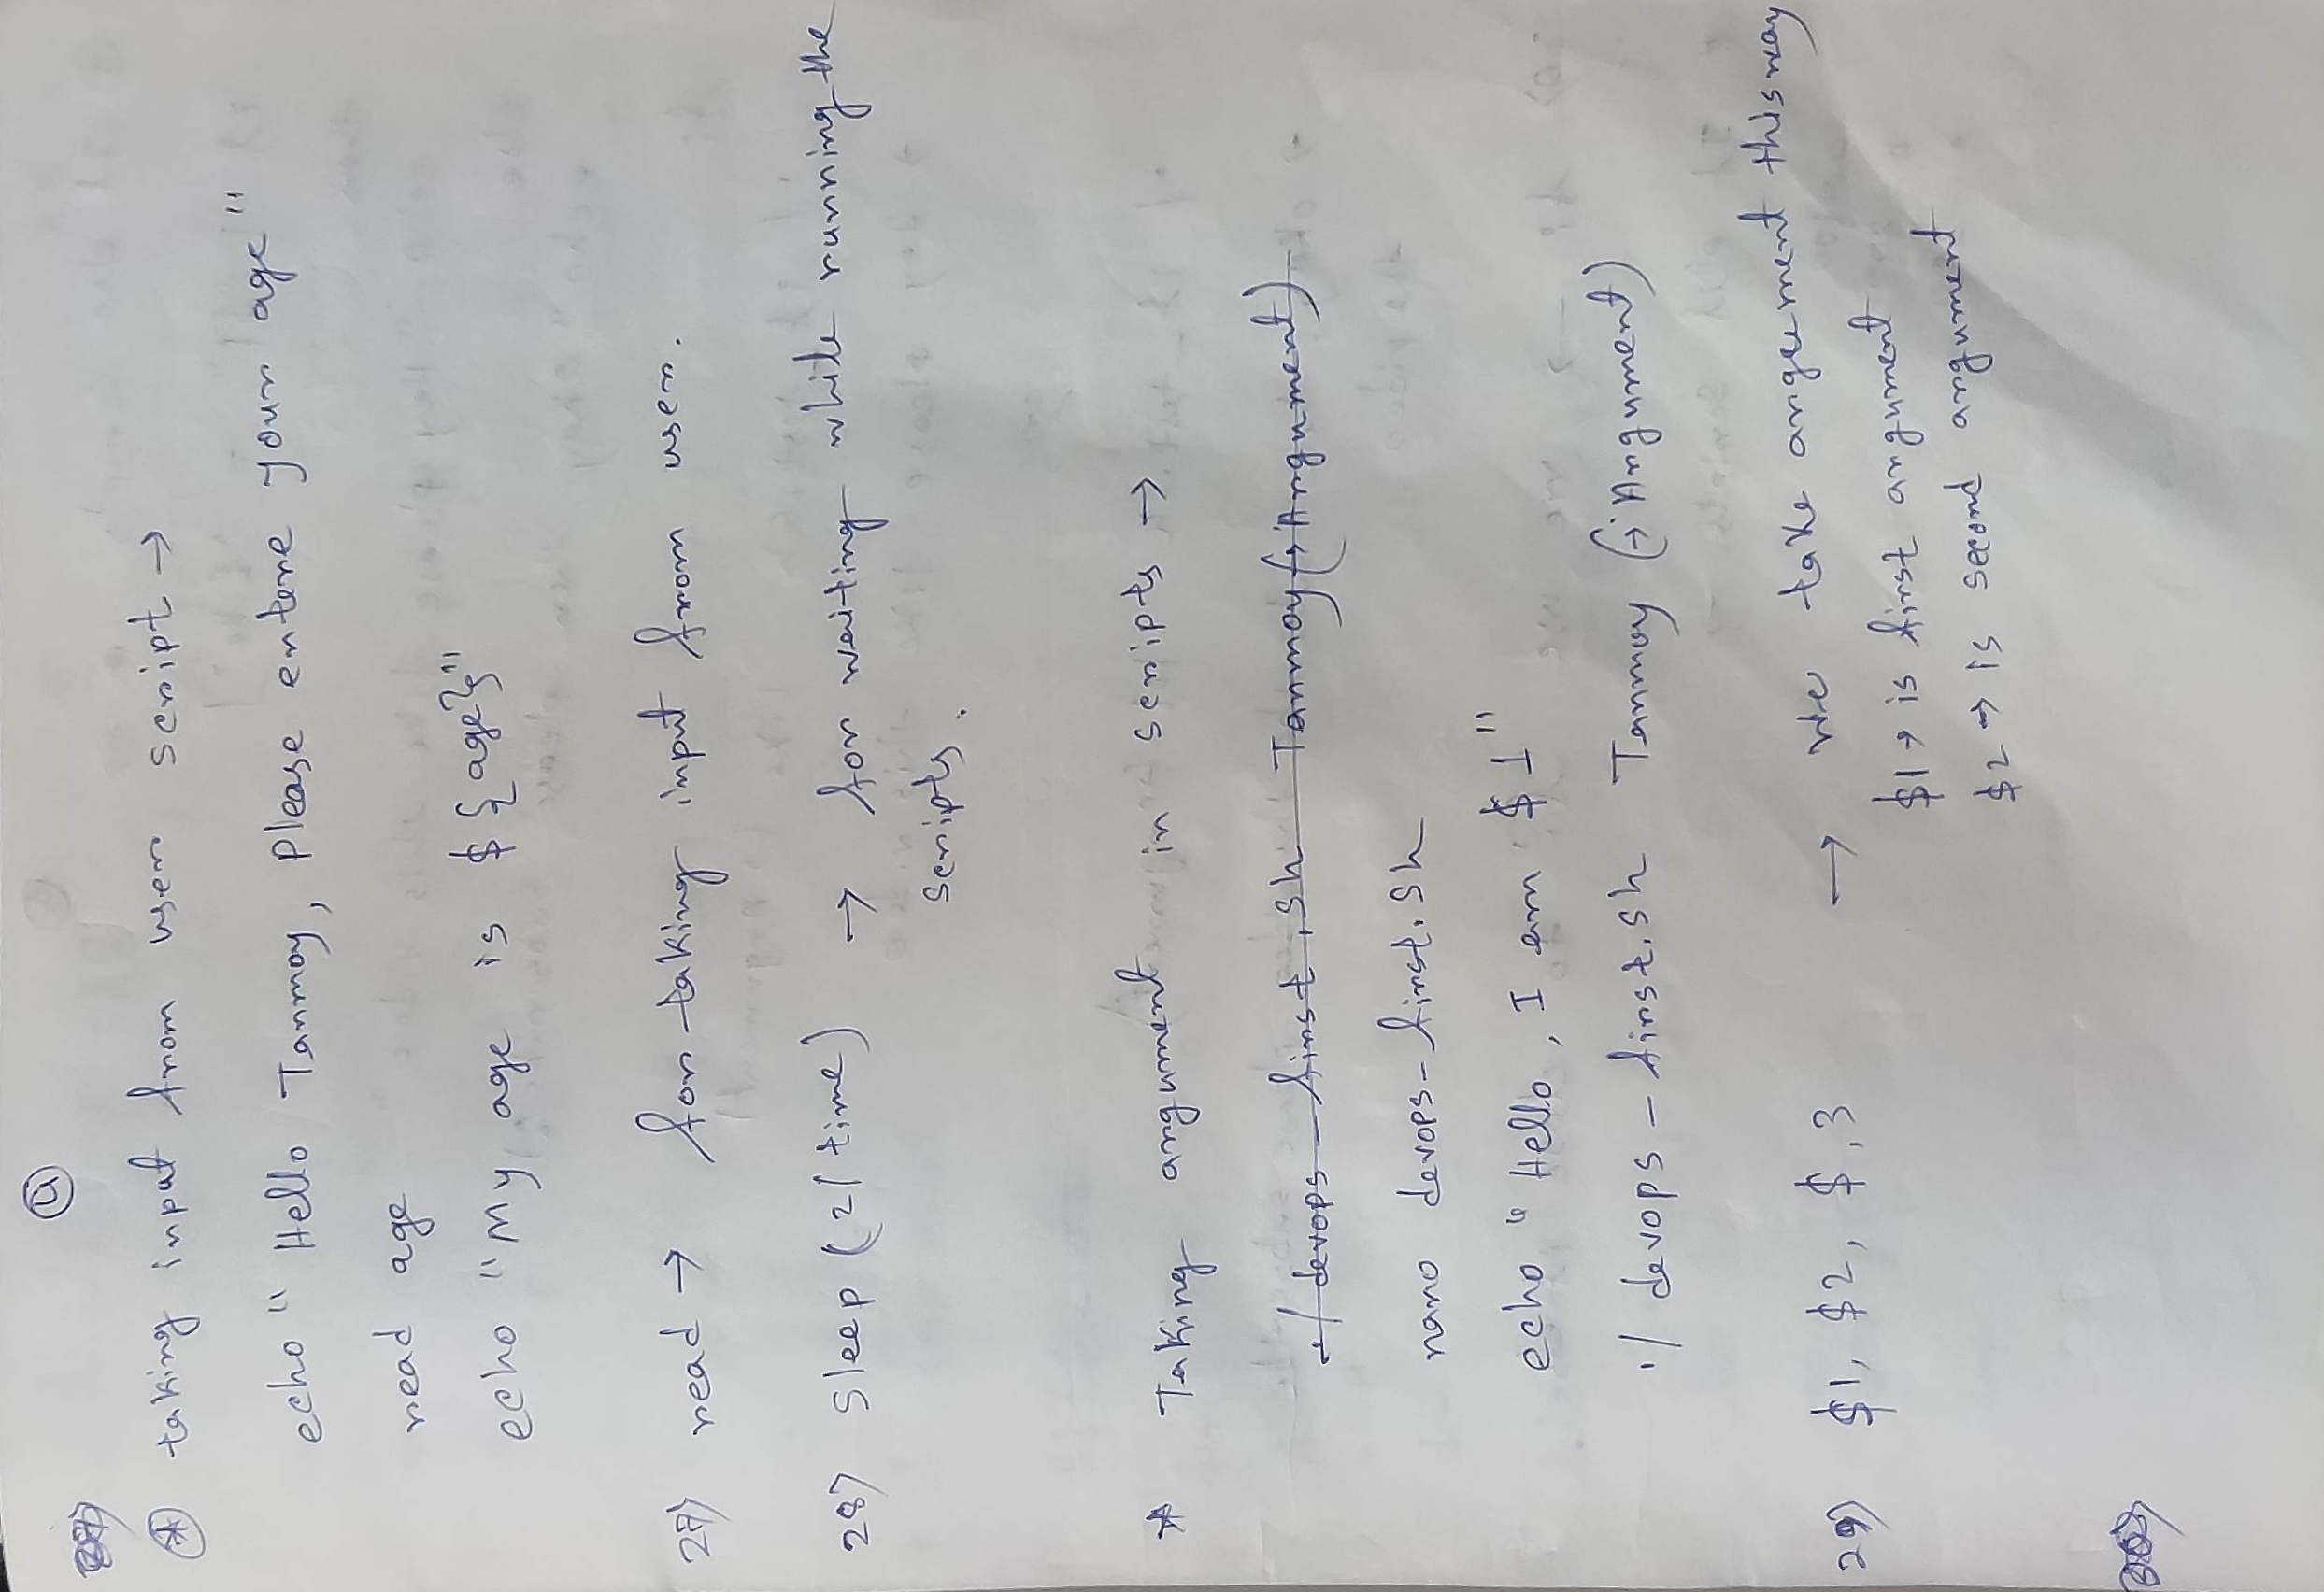 4
* taking input from user script →
echo " Hello Tanmoy, Please entere your age "
read age
echo "My age is ${age}"
27) read → for taking input from user.
28) Sleep (2/time) → for waiting while running the
scripts.
* Taking argument in scripts →
./devops-first.sh Tanmoy (→ Argument)
nano devops-first.sh
echo "Hello, I am $1"
./devops-first.sh Tanmoy (→ Argument)
29) $1, $2, $,3 → we take argument this way
$1 → is first argument
$2 → is second argument